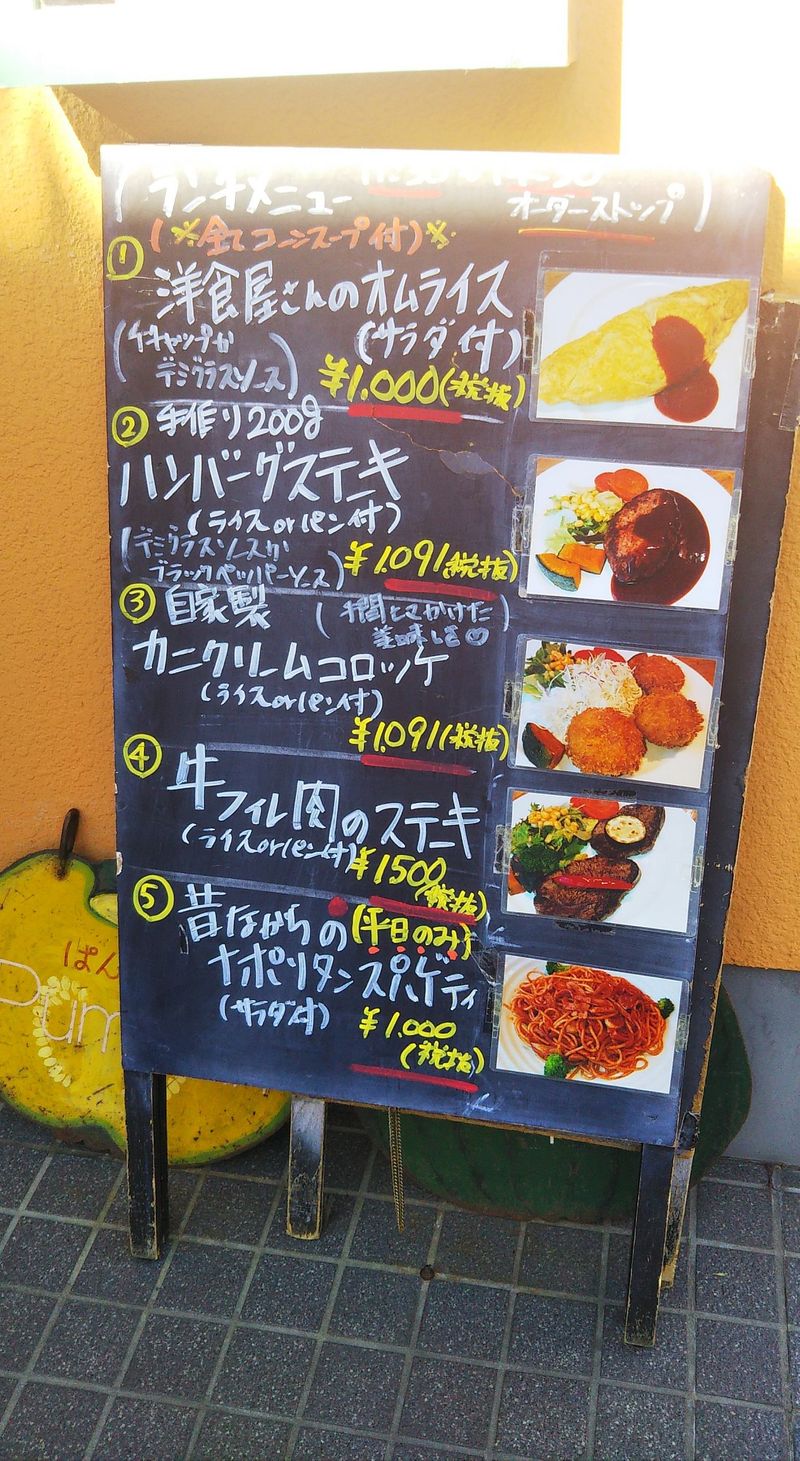 ランチメニュー
オーダーストップ
(※全てコーンスープ付)※
① 洋食屋さんのオムライス
(サラダ付)
(ケチャップか
デミグラスソース)
¥1.000(税抜)
② 手作り200g
ハンバーグステーキ
(ライスorパン付)
(デミグラスソースか
ブラックペッパーソース)
¥1.091(税抜)
③ 自家製
(手間とまかけた
美味しさ♡)
カニクリームコロッケ
(ライスorパン付)
¥1.091(税抜)
④ 牛フィレ肉のステーキ
(ライスorパン付)
¥1500
(税抜)
⑤ 昔ながらの(平日のみ)
ナポリタンスパゲティ
(サラダ付)
¥1.000
(税抜)
ぱん
Pum